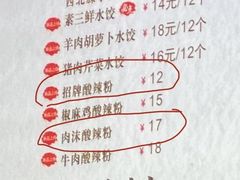 素三鲜水饺 ¥14元/12个
羊肉胡萝卜水饺 ¥18元/12个
猪肉芹菜水饺 ¥16元/12个
招牌酸辣粉 ¥12
椒麻鸡酸辣粉 ¥15
肉沫酸辣粉 ¥17
牛肉酸辣粉 ¥18